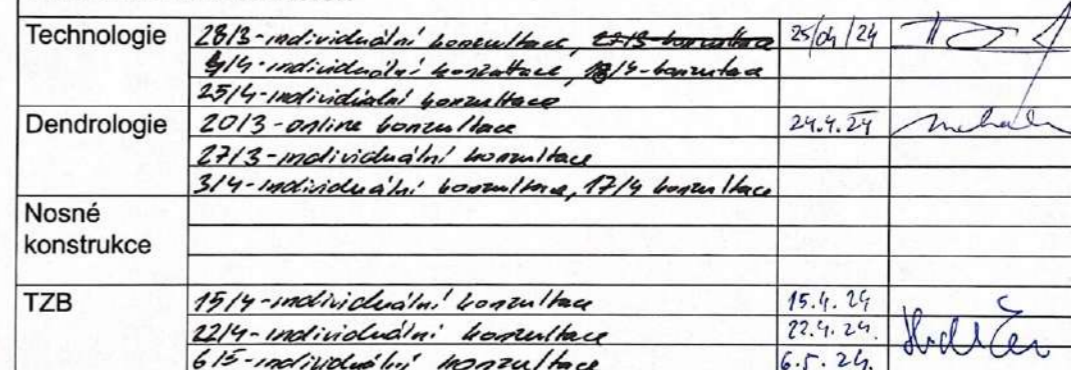 Technologie 28/3 - individuální konzultace, 27/3 - konzultace 25/04/24
9/4 - individuální konzultace, 18/4 - konzultace
25/4 - individuální konzultace
Dendrologie 20/3 - online konzultace 24.4.24
27/3 - individuální konzultace
3/4 - individuální konzultace, 17/4 konzultace
Nosné
konstrukce
TZB 15/4 - individuální konzultace 15.4.24
22/4 - individuální konzultace 22.4.24.
6/5 - individuální konzultace 6.5.24.